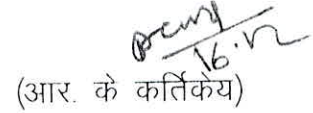 16.12
(आर. के कर्तिकेय)